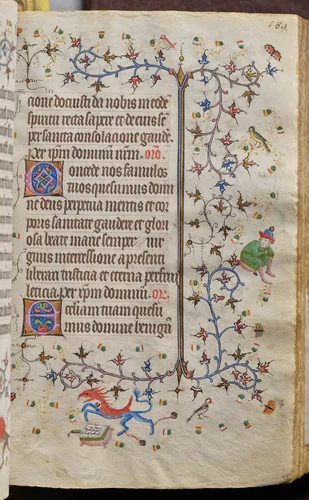 cione docuisti da nobis in eodē
spiritu recta sapere et de eius sē
per sancta consolacione gaudē.
per xp̄m dominū nr̄m. orō.
Concede nos famulos
tuos quesumus domi
ne deus perpetua mentis et cor
poris sanitate gaudere et glori
osa beate marie semper uir
ginis intercessione a presenti
liberari tristicia et eterna perfrui
leticia. per xp̄m dominū. or.
Ecclesiam tuam quesu
mus domine benignꝰ